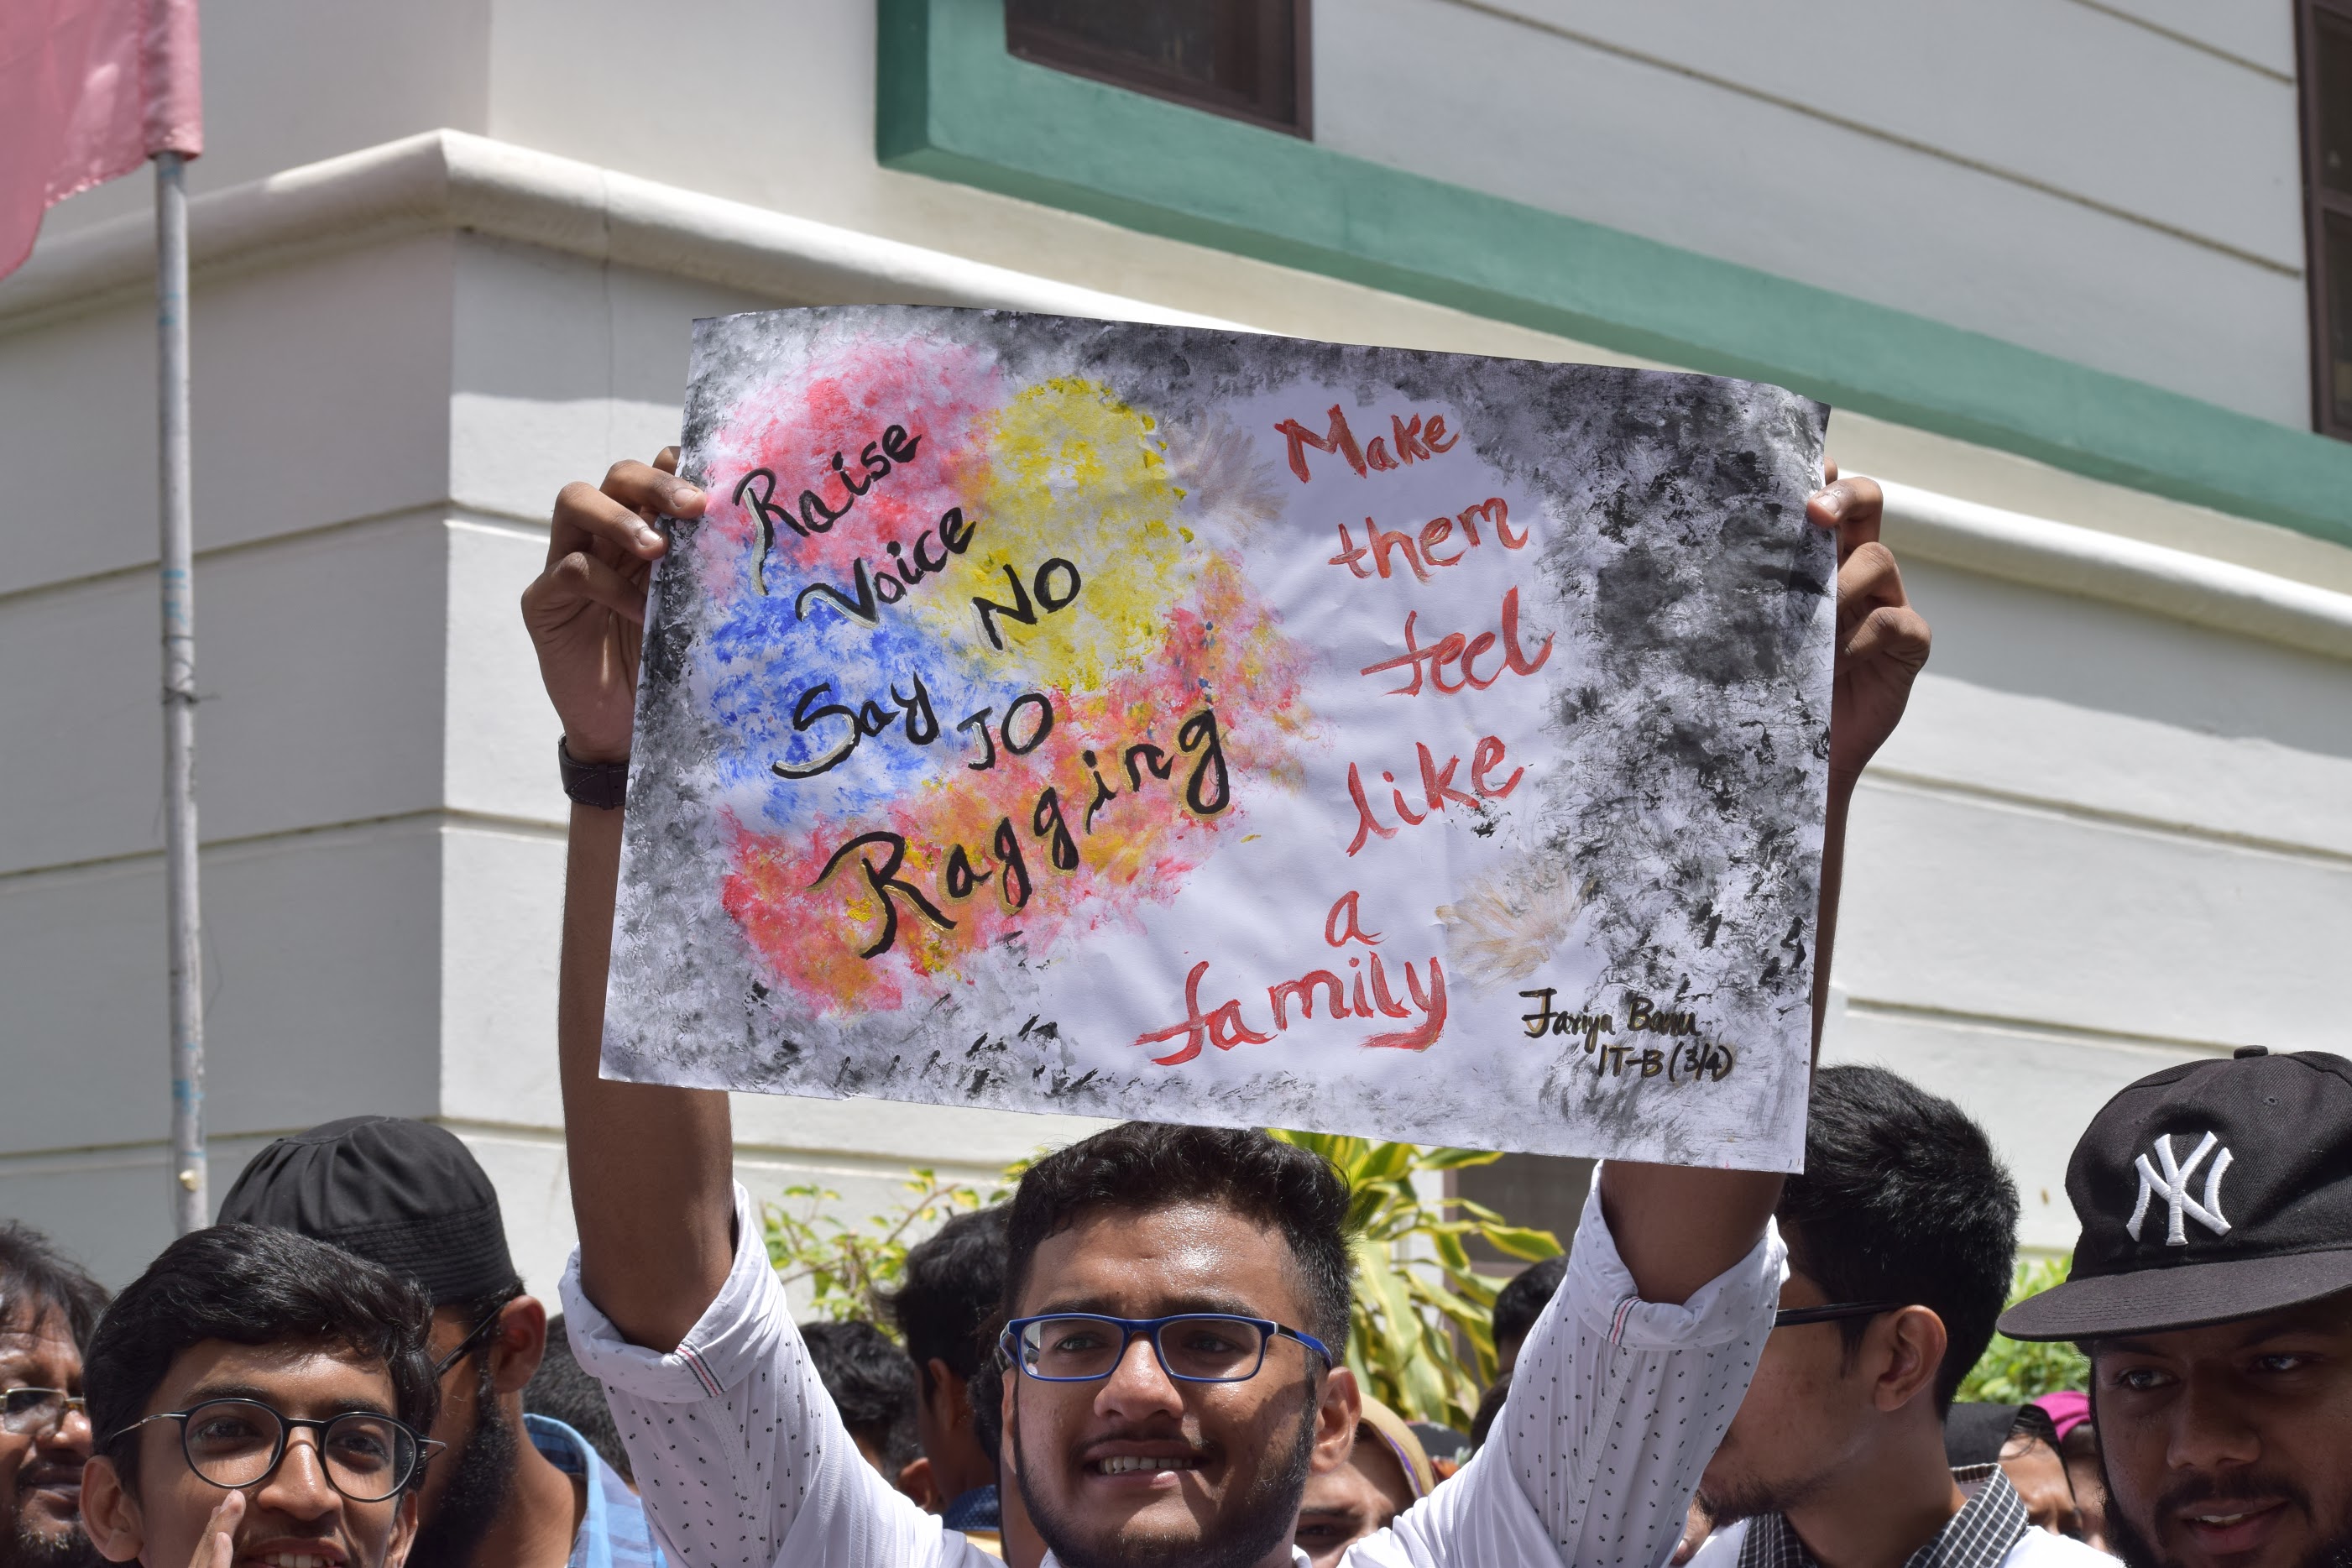 Raise
Voice
Say NO
TO
Ragging
Make
them
feel
like
a
family
Fariya Banu
IT-B (3/4)
NY